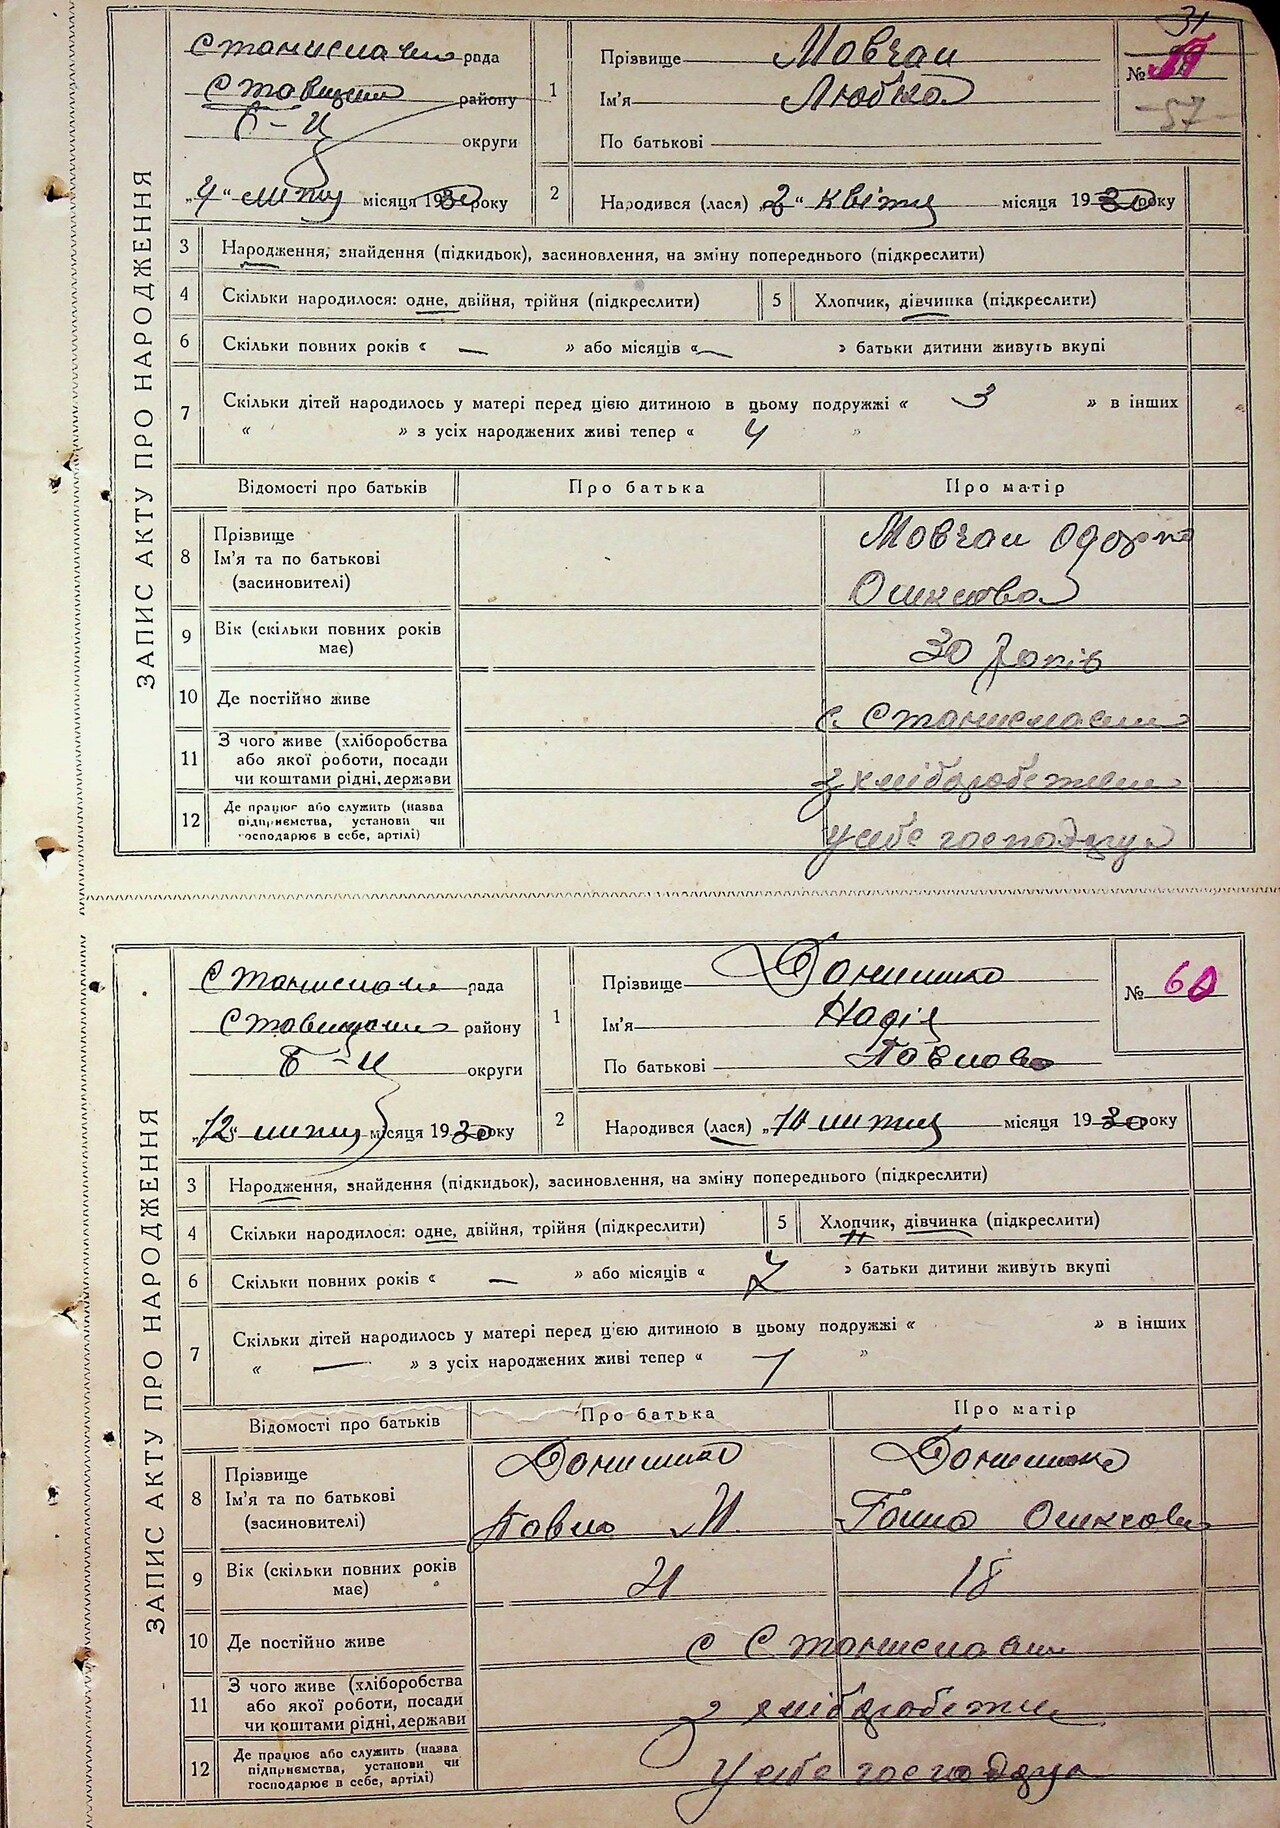 31
ЗАПИС АКТУ ПРО НАРОДЖЕННЯ
Станиславч рада
Ставищан району
Б-Ц округи
„4“ липця місяця 1930 року
1
Прізвище Мовчан
Ім'я Любка
По батькові
№
57
2
Народився (лася) „2“ квітня місяця 1930 року
3 Народження, знайдення (підкидьок), засиновлення, на зміну попереднього (підкреслити)
4 Скільки народилося: одне, двійня, трійня (підкреслити) 5 Хлопчик, дівчинка (підкреслити)
6 Скільки повних років « — » або місяців « — » батьки дитини живуть вкупі
7 Скільки дітей народилось у матері перед цією дитиною в цьому подружжі « 3 » в інших
« » з усіх народжених живі тепер « 4 »
Відомості про батьків Про батька Про матір
8 Прізвище
Ім'я та по батькові
(засиновителі)
Мовчан Одарка
Олексіова
9 Вік (скільки повних років
має)
30 років
10 Де постійно живе
с. Станиславчик
11 З чого живе (хліборобства
або якої роботи, посади
чи коштами рідні, держави
з хліборобства
12 Де працює або служить (назва
підприємства, установи чи
господарює в себе, артілі)
у себе господарує
ЗАПИС АКТУ ПРО НАРОДЖЕННЯ
Станиславч рада
Ставищан району
Б-Ц округи
„12“ липця місяця 1930 року
1
Прізвище
Ім'я Надія
По батькові Павлова
№ 60
2
Народився (лася) „10 липця місяця 1930 року
3 Народження, знайдення (підкидьок), засиновлення, на зміну попереднього (підкреслити)
4 Скільки народилося: одне, двійня, трійня (підкреслити) 5 Хлопчик, дівчинка (підкреслити)
6 Скільки повних років « — » або місяців « » батьки дитини живуть вкупі
7 Скільки дітей народилось у матері перед цією дитиною в цьому подружжі « » в інших
« — » з усіх народжених живі тепер « 1 »
Відомості про батьків Про батька Про матір
8 Прізвище
Ім'я та по батькові
(засиновителі)
Павло И.
Ганна Олексіова
9 Вік (скільки повних років
має)
21
18
10 Де постійно живе
с Станиславчик
11 З чого живе (хліборобства
або якої роботи, посади
чи коштами рідні, держави
з хліборобства
12 Де працює або служить (назва
підприємства, установи чи
господарює в себе, артілі)
У себе господарує